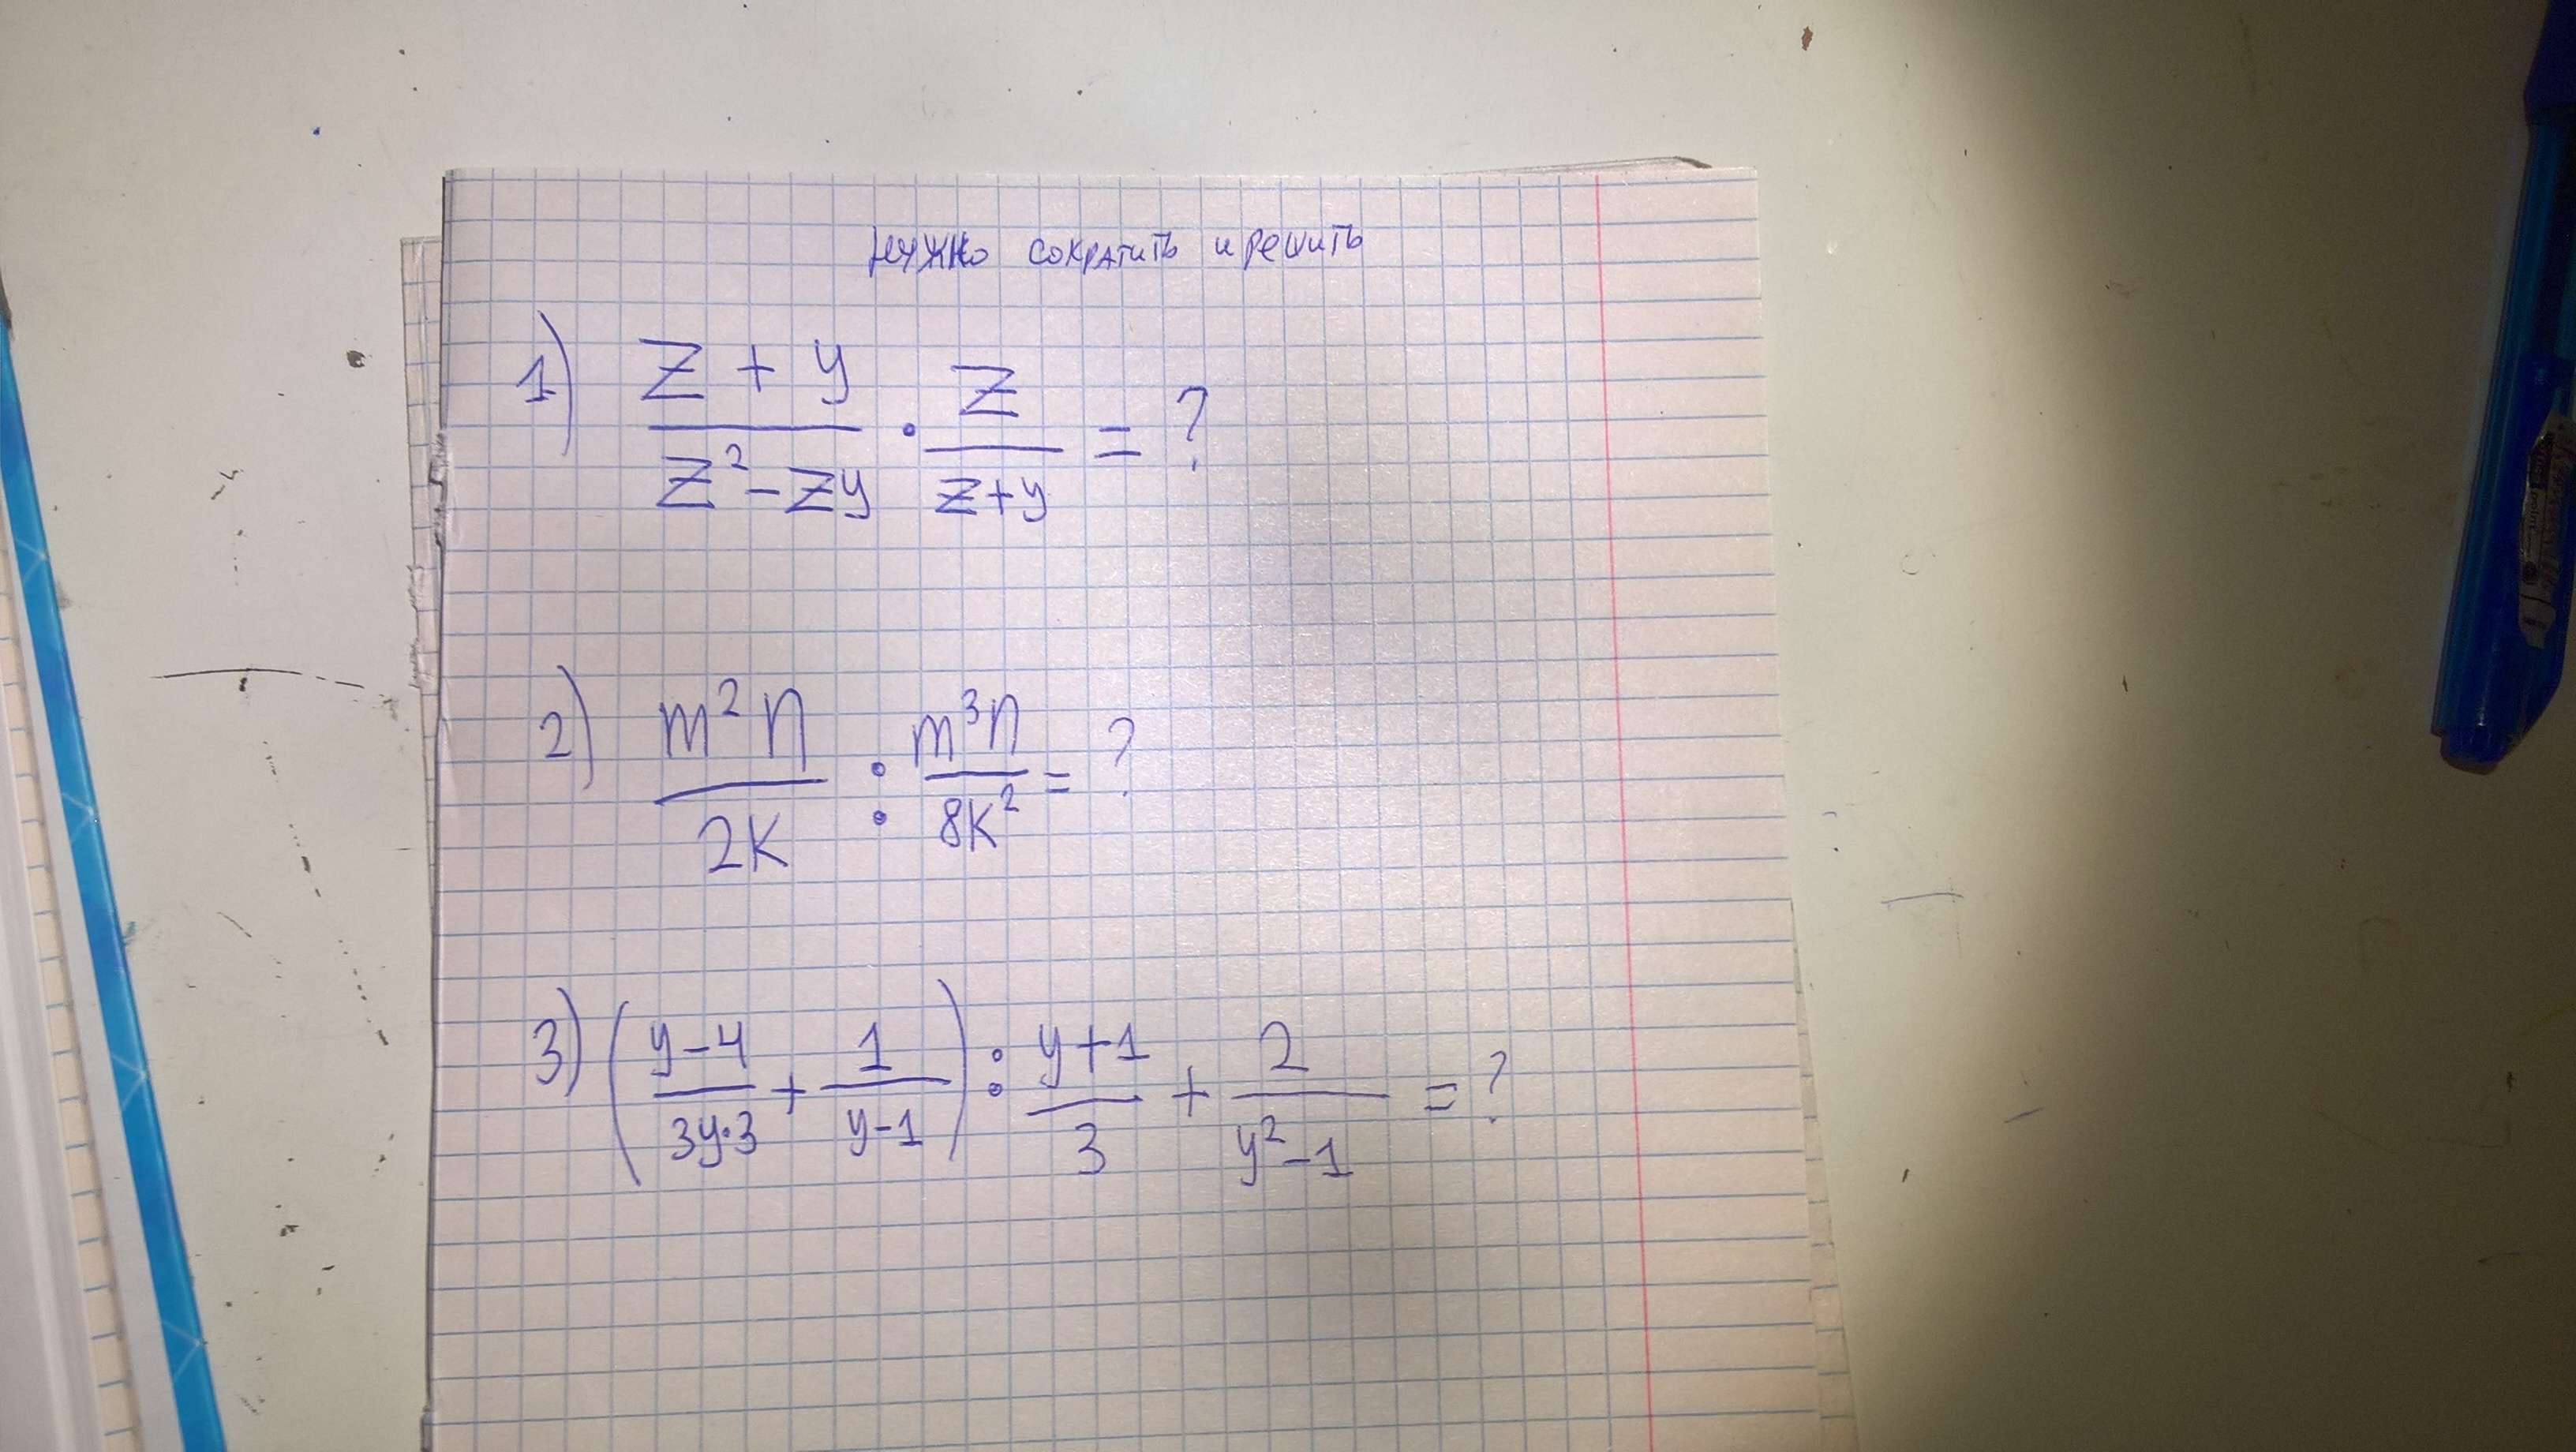 нужно сократить и решить
1) \frac{z + y}{z^2 - zy} \cdot \frac{z}{z+y} = ?
2) \frac{m^2 n}{2k} : \frac{m^3 n}{8k^2} = ?
3) \left( \frac{y-4}{3y \cdot 3} + \frac{1}{y-1} \right) : \frac{y+1}{3} + \frac{2}{y^2-1} = ?